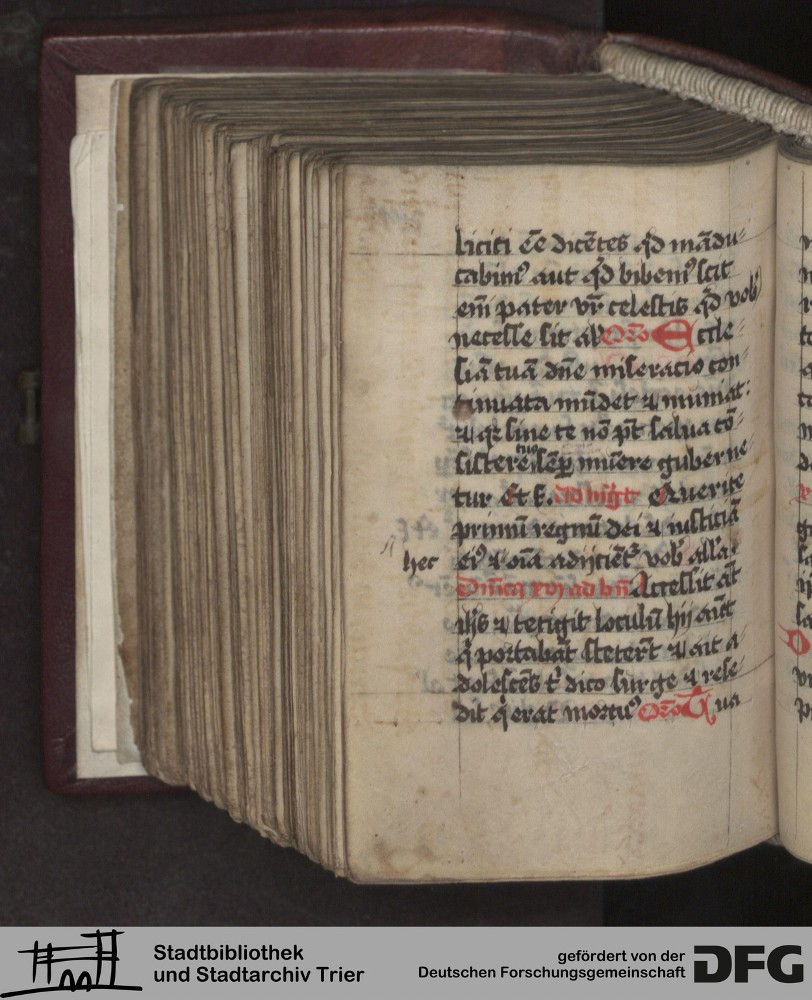 licitiēē dicētes qd mādu
cabim9 aut qd bibem9 scit
em̄ pater vr̄ celestis qd vob
necesse sit al Oro Eccle
siā tuā dn̄e miseracio con
tinuata mūdet ⁊ muniat:
⁊ qz sine te nō pt̄ salua cō
sistere tuo semp̱ mūere guberne
tur Et f. Ad bn̄gt Querite
primū regnū dei ⁊ iusticiā
hec ei9 ⁊ oīa adijciēt̉ vob alla
Dn̄ica xvj ad bn̄ Accessit āt
ihs ⁊ tetigit loculū hij aūt
q̇ portabāt steterūt ⁊ ait a
dolescēs t̉ dico surge ⁊ rese
dit q̇ erat mortu9 Oro Tua
Stadtbibliothek
und Stadtarchiv Trier
gefördert von der
Deutschen Forschungsgemeinschaft
DFG